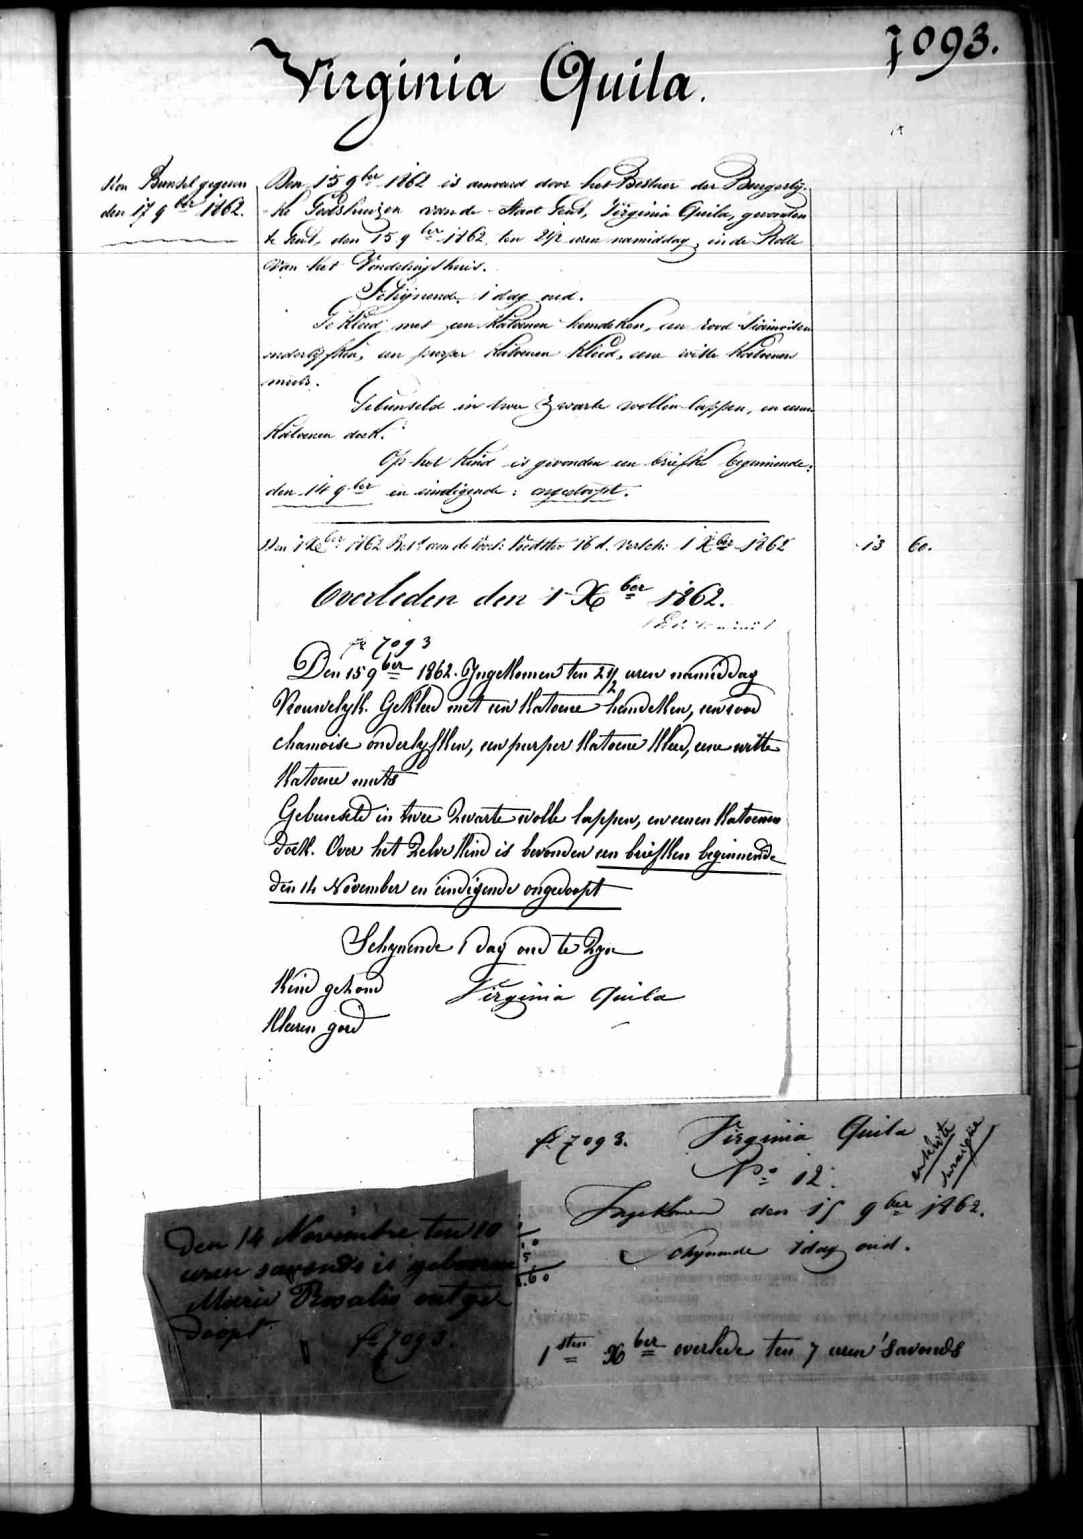 7093.
Virginia Quila.
den 17 9ber 1862.
Den 15 9ber 1862 is aenveerd door het Bestier der Burgerlij-
ke Godshuizen van de Stad Gent, Virginia Quila, gevonden
te Gent, den 15 9ber 1862, ten 2 1/2 uren namiddag, in de Rolle
van het Vondelingshuis.
Schijnende 1 dag oud.
Gekleed met een Katoenen hemdeken, een rood
onderlyfken, een purper Katoenen Kleed, eene witte Katoenen
muts.
Gebunseld in twee zwarte wollen lappen, en eenen
Katoenen doek.
Op het Kind is gevonden een briefke beginnende:
den 14 9ber en eindigende: ongedoopt.
Den 1 Xber 1862 16 d. 1 Xber 1862 13 60.
Overleden den 1 Xber 1862.
fo 7093
Den 15 9ber 1862. Ingekomen ten 2 1/2 uren namiddag
Vrouwelyk. Gekleed met een Katoene hemdeken, een rood
chamoise onderlyfken, een purper Katoene Kleed, eene witte
Katoene muts
Gebunseld in twee Zwarte wolle lappen, en eenen Katoenen
doek. Over het Zelve Kind is bevonden een briefken beginnende
den 14 November en eindigende ongedoopt
Schynende 1 dag oud te Zyn
Kind gezond Virginia Quila
Kleeren goed
fo 7093. Virginia Quila
No 12.
Ingekomen den 15 9ber 1862.
Schynende 1 dag oud.
1sten Xber overlede ten 7 uren 'savonds
Den 14 Novembre ten 10
uren savonds is geboren
Marie Rosalie ontge
doopt
fo 7093.